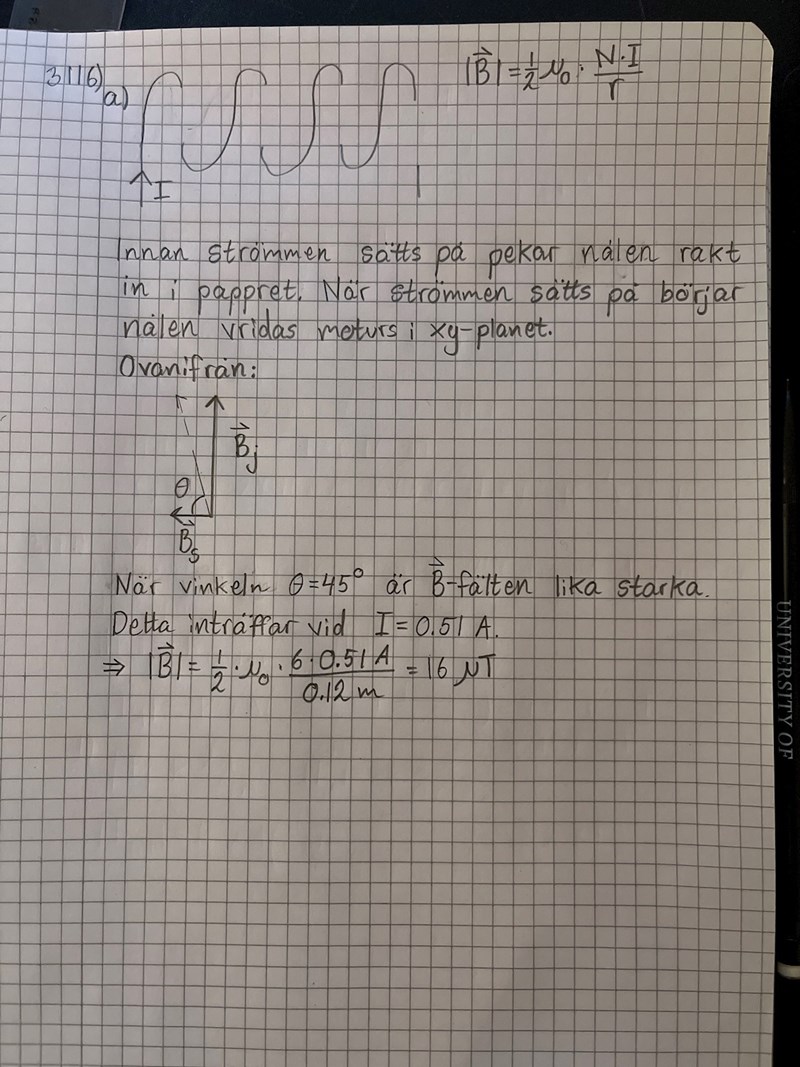 3116)
a)
|B⃗| = 1/2 μ₀ · N·I/r
↑ I
Innan strömmen sätts på pekar nålen rakt
in i pappret. När strömmen sätts på börjar
nålen vridas moturs i xy-planet.
Ovanifrån:
B⃗j
θ
B⃗s
När vinkeln θ=45° är B⃗-fälten lika starka.
Detta inträffar vid I = 0.51 A.
⇒ |B⃗| = 1/2 · μ₀ · 6·0.51 A/0.12 m = 16 μT
UNIVERSITY OF